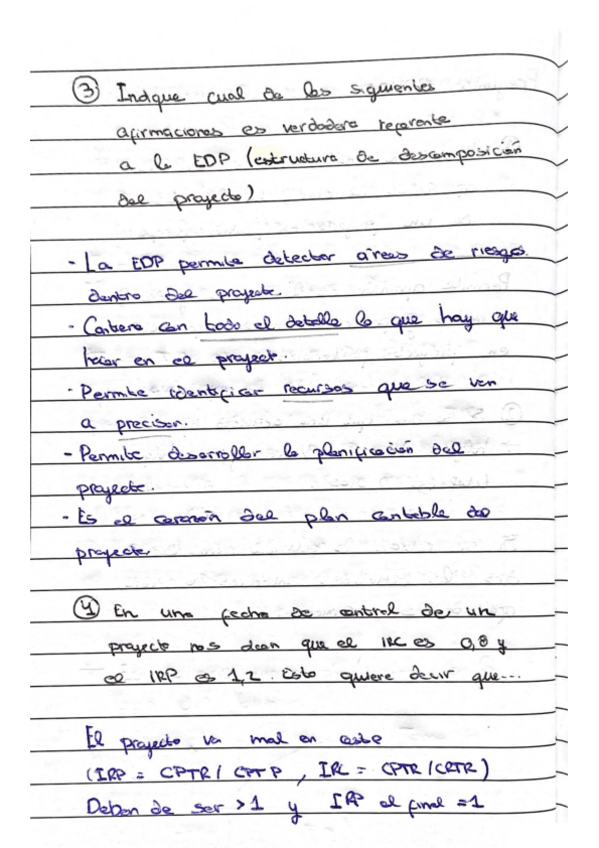 ③ Indique cual de las siguientes
afirmaciones es verdadera referente
a la EDP (estructura de descomposición
del proyecto)
- La EDP permite detectar áreas de riesgos
dentro del proyecto.
- Contiene con todo el detalle lo que hay que
hacer en el proyecto.
- Permite identificar recursos que se van
a precisar.
- Permite desarrollar la planificación del
proyecto.
- Es el corazón del plan contable del
proyecto.
④ En una fecha de control de un
proyecto nos dicen que el IRC es 0,8 y
el IRP es 1,2. Esto quiere decir que...
El proyecto va mal en coste
(IRP = CPTR / CPTP, IRC = CPTR / CRTR)
Deben de ser >1 y IRP al final =1